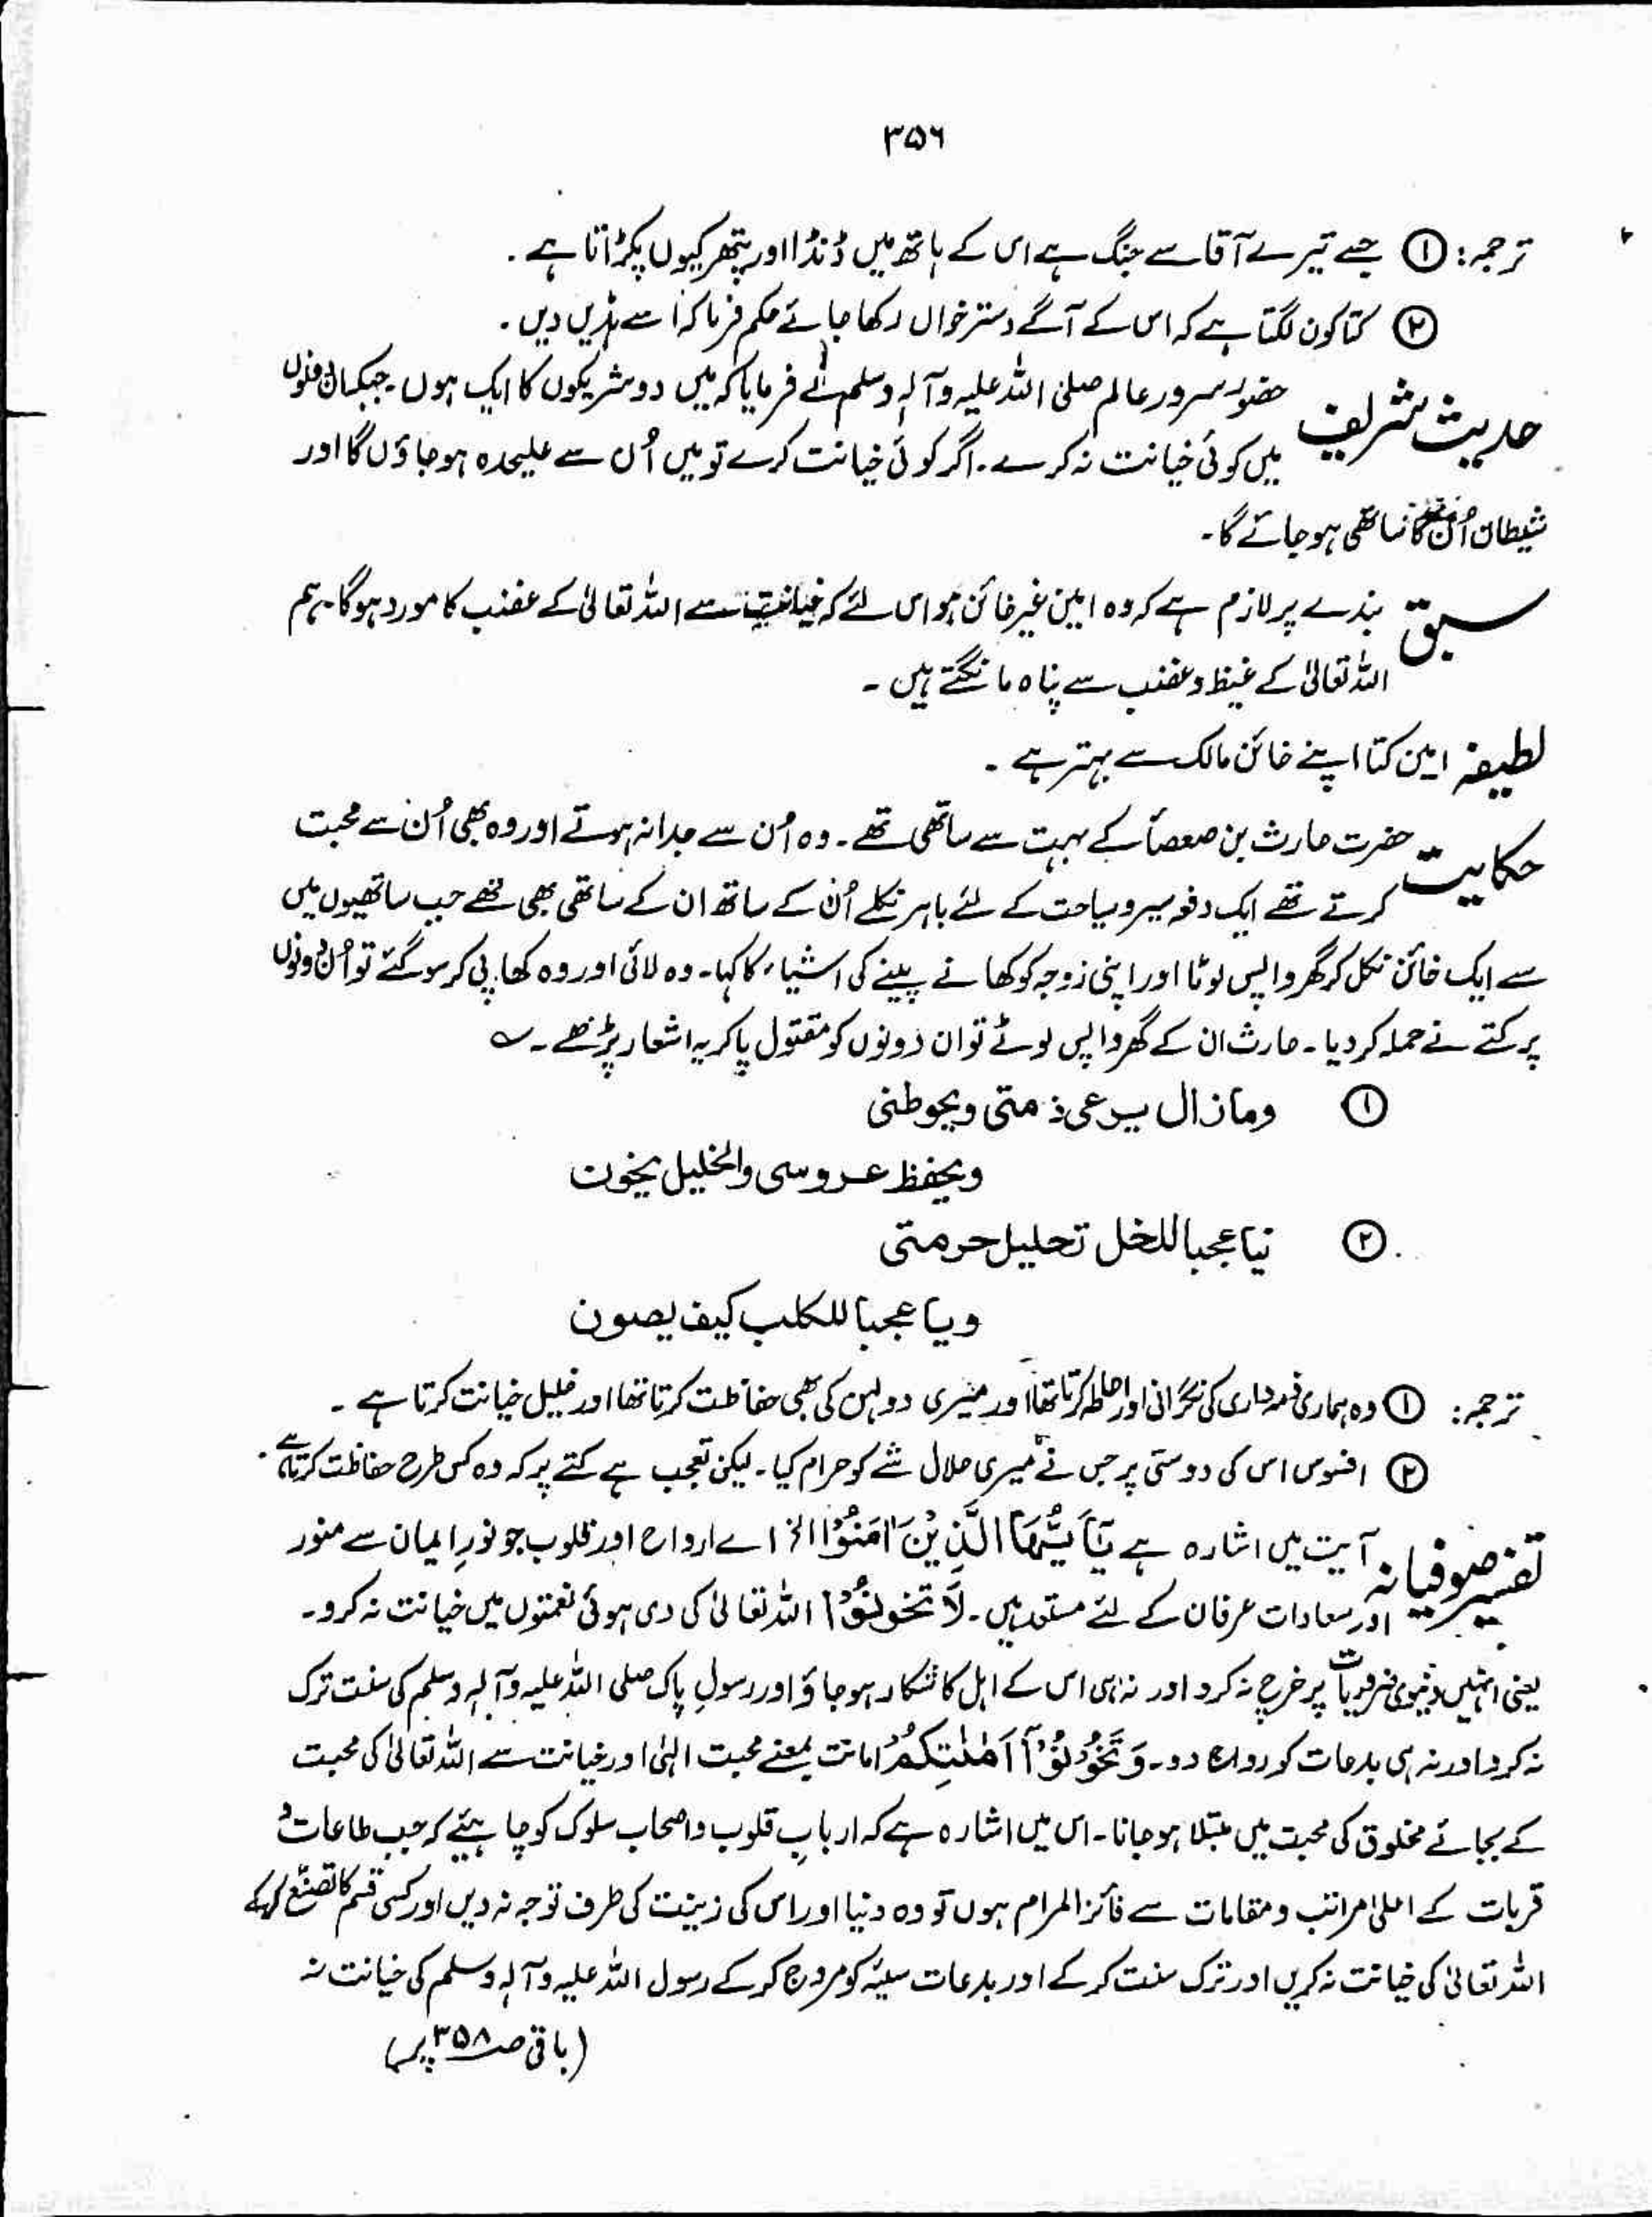 ۳۵۶
ترجمہ: ① جسے تیرے آقا سے جنگ ہے اس کے ہاتھ میں ڈنڈا اور پتھر کیوں پکڑاتا ہے.
② کتا کون لگتا ہے کہ اس کے آگے دسترخوان رکھا جائے حکم فرما کہ اسے ہڈیں دیں.
حدیث شریف حضور سرور عالم صلی اللہ علیہ وآلہٖ وسلم نے فرمایا کہ میں دو شریکوں کا ایک ہوں۔ جبکہ ان دونوں
میں کوئی خیانت نہ کرے۔ اگر کوئی خیانت کرے تو میں اُن سے علیحدہ ہو جاؤں گا اور
شیطان اُن کا ساتھی ہو جائے گا۔
سبق بندے پر لازم ہے کہ وہ امین غیر خائن ہو اس لئے کہ خیانت سے اللہ تعالیٰ کے غضب کا مورد ہوگا۔ ہم
اللہ تعالیٰ کے غیظ و غضب سے پناہ مانگتے ہیں۔
لطیفہ امین کتا اپنے خائن مالک سے بہتر ہے۔
حکایت حضرت حارث بن صعصاً کے بہت سے ساتھی تھے۔ وہ اُن سے جدا نہ ہوتے اور وہ بھی اُن سے محبت
کرتے تھے ایک دفعہ سیر و سیاحت کے لئے باہر نکلے اُن کے ساتھ ان کے ساتھی بھی تھے جب ساتھیوں میں
سے ایک خائن نکل کر گھر واپس لوٹا اور اپنی زوجہ کو کھانے پینے کی اشیاء کا کہا۔ وہ لائی اور وہ کھا پی کر سو گئے تو اُن دونوں
پر کتے نے حملہ کر دیا۔ حارث ان کے گھر واپس لوٹے تو ان دونوں کو مقتول پا کر یہ اشعار پڑھے۔ ؎
① ومازال یرعی ذمتی ویحوطنی
ویحفظ عروسی والخلیل یخون
② نیا عجبا للخل تحلیل حرمتی
ویا عجبا للکلب کیف یصون
ترجمہ: ① وہ ہماری ذمہ داری کی نگرانی اور احاطہ کرتا تھا اور میری دولہن کی بھی حفاظت کرتا تھا اور خلیل خیانت کرتا ہے۔
② افسوس اس کی دوستی پر جس نے میری حلال شے کو حرام کیا۔ لیکن تعجب ہے کتے پر کہ وہ کس طرح حفاظت کرتا ہے.
تفسیر صوفیانہ آیت میں اشارہ ہے یٰۤاَیُّهَا الَّذِیْنَ اٰمَنُوْا الخ اے ارواح اور قلوب جو نورِ ایمان سے منور
اور سعادات عرفان کے لئے مستعد ہیں۔ لَا تَخُوْنُوْا اللہ تعالیٰ کی دی ہوئی نعمتوں میں خیانت نہ کرو۔
یعنی انہیں دنیوی ضروریات پر خرچ نہ کرو اور نہ ہی اس کے اہل کا شکار ہو جاؤ اور رسولِ پاک صلی اللہ علیہ وآلہٖ وسلم کی سنت ترک
نہ کرو اور نہ ہی بدعات کو رواج دو۔ وَ تَخُوْنُوْۤا اَمٰنٰتِكُمْ امانت بمعنے محبت الٰہی اور خیانت سے اللہ تعالیٰ کی محبت
کے بجائے مخلوق کی محبت میں مبتلا ہو جانا۔ اس میں اشارہ ہے کہ اربابِ قلوب و اصحاب سلوک کو چاہیئے کہ جب طاعات و
قربات کے اعلیٰ مراتب و مقامات سے فائز المرام ہوں تو وہ دنیا اور اس کی زینت کی طرف توجہ نہ دیں اور کسی قسم کا تصنّع کر کے
اللہ تعالیٰ کی خیانت نہ کریں اور ترک سنت کر کے اور بدعات سیئہ کو مروج کر کے رسول اللہ علیہ وآلہٖ وسلم کی خیانت نہ
(باقی صـ ۳۵۸ پر)